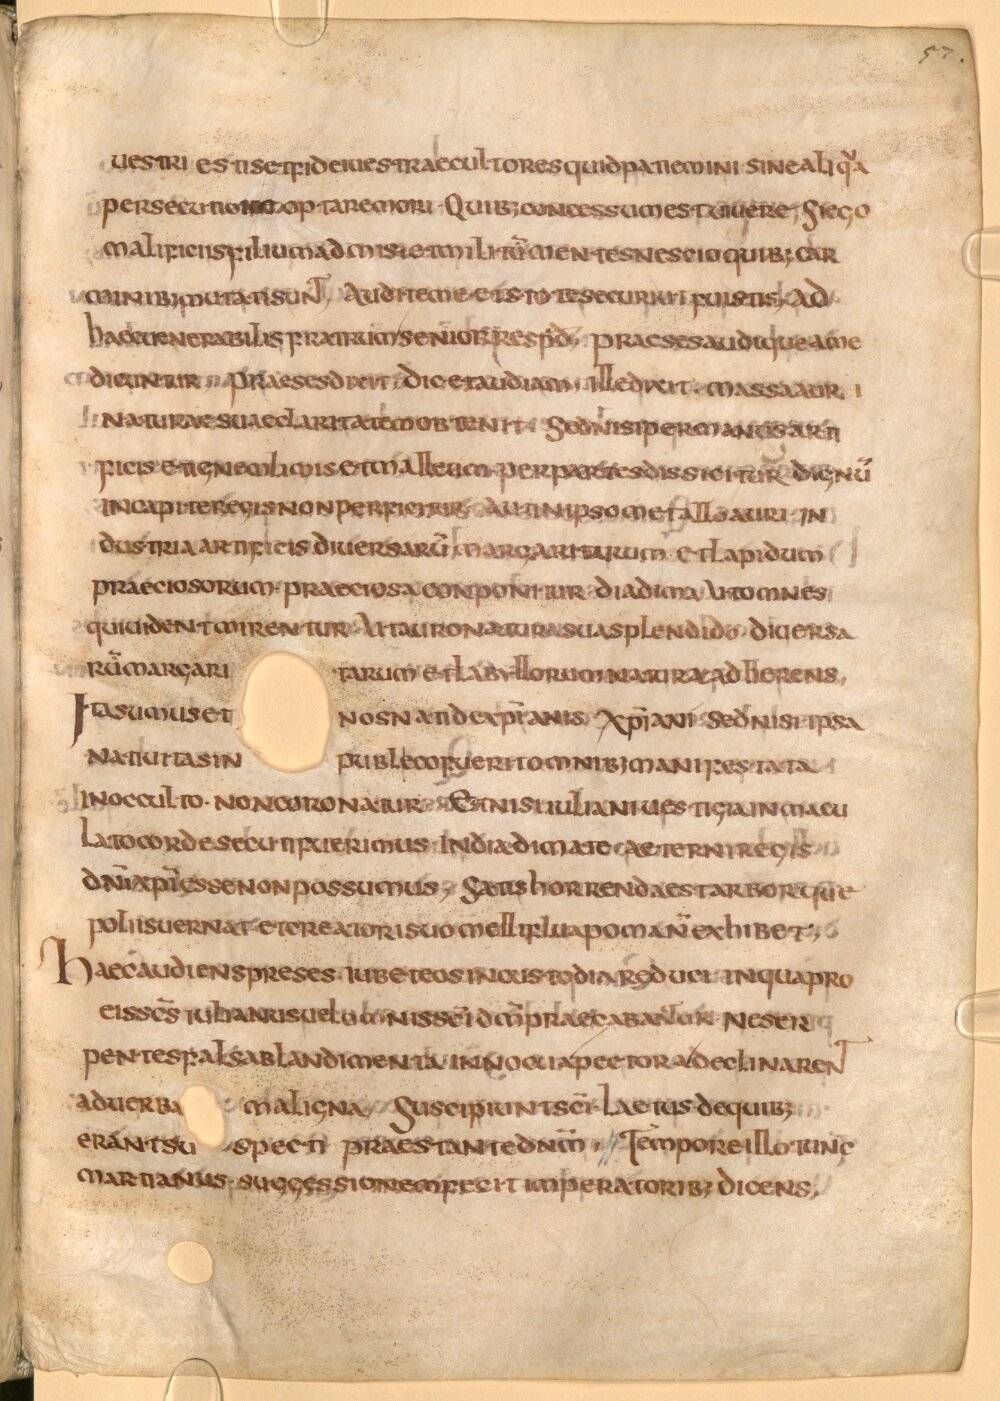 57.
uestri estis et fidei uestrae cultores quid patiemini sine aliqͣ
persecutione optare mori · Quibꝫ concessum est uiuere, Si ego
malificiis filium admisi et mihi tm̄ mentes nescio quibꝫ car
minibꝫ mutati sunt, Audite me et isto te securi fuistis, Ad
haec uenerabilis fratrum senior resp̄d, praeses audi quae a me
dicuntur, praeses dixit · Dic et audiam, ille dixit · massa auri
naturae suae claritatem obtenit · Sed nisi per manus arti
ficis et ignem limis et malleum per partes dissicitur dignū
in capite regis non perficitur · At in ipso metallo auri in
dustria artificis diuersarū margaritarum et lapidum
praeciosorum · praeciosa conponitur diadima Ut omnes
qui uident mirentur · At auro natura sua splendido diuersa
rū margari tarum et labyllorum natura adherens,
Ita sumus et nos nati de xp̄ianis, Xp̄iani sed nisi ipsa
natiuitas in publeco fuerit omnibꝫ manifestata
in occulto · non coronatur · Et nisi iuliani uestigia inmacu
lato corde secuti fuerimus · In diadimate aeterni regis
dn̄i xp̄i esse non possumus, Satis horrenda est arbor que
poliis uernat et creatori suo melliflua poma n̄ exhibet,
Haec audiens preses · iubet eos in custodia reduci · in qua pro
eis sc̄s iulianus uel omnis sc̄i dm̄ praecabantur · Ne ser
pentes falsa blandimenta innocua pectora declinarent
ad uerba maligna, Suscipiunt sc̄i laetus · de quibꝫ
erant su specti praestante dn̄m, Tempore illo tunc
martianus suggessionem fecit imperatoribꝫ dicens,